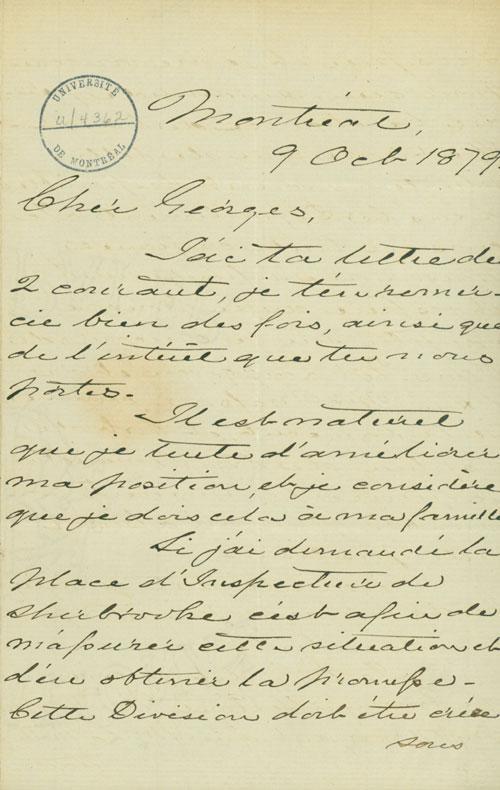 UNIVERSITÉ
u/4362
DE MONTRÉAL
Montréal,
9 Octb 1879.
Cher Georges,
J'ai ta lettre de
2 courant, je t'en remer-
cie bien des fois, ainsi que
de l'intérêt que tu nous
portes.
Il est naturel
que je tente d'améliorer
ma position, et je considère
que je dois cela à ma famille
Si j'ai demandé la
place d'Inspecteur de
Sherbrooke c'est afin de
m'assurer cette situation et
d'en obtenir la promesse -
Cette Division doit être créée
sous